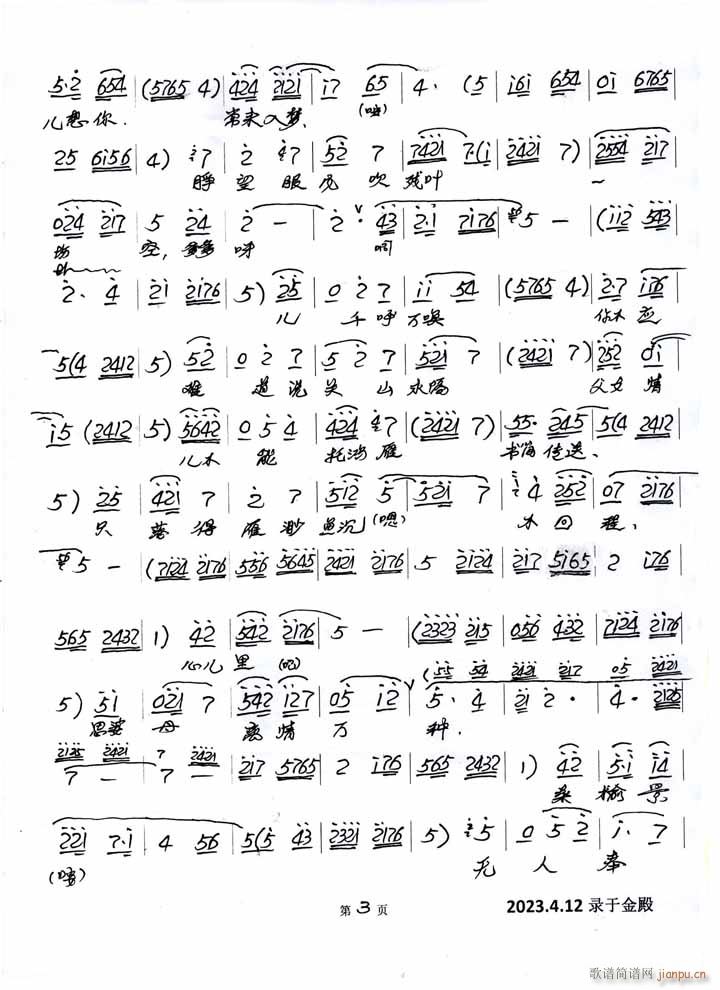 5·2 654 | (5765 4) | 424 2121 | i7 65 | 4· (5 | i6i 654 | 0i 6765
儿想你. 常来入梦 (嗯)
25 6i56 | 4) 7 | 2 7 | 52 7 | 7421 7·(i | 2421 7) | 2554 217
睁望眼风吹残叶
024 217 | 5 24 | 2 — | 2· 43 | 2·1 7176 | 5 — | (112 543
空, 呼 啊
2· 4 | 21 2176 | 5) 25 | 0 2 7 | ii 54 | (5765 4) | 2·7 i76
儿 千呼万唤 你不应
5(4 2412 | 5) 52 | 0 2 7 | 5 2 7 | 521 7 | (2421 7) | 252 0i
难道说关山水隔 父女情
i5 (2412 | 5) 5642 | 0 5 4 | 424 7 | (2421 7) | 55· 245 | 5(4 2412
儿不能托鸿雁 书信传送、
5) 25 | 421 7 | 2 7 | 512 5 | 521 7 | 4 252 | 07 2176
只落得雁渺鱼沉(嗯) 不回程,
5 — | (7124 2176 | 556 5645 | 2421 2176 | 5 2124 | 217 5165 | 2 i76
565 2432 | 1) 42 | 542 2176 | 5 — | (2323 215 | 056 432 | 7124 2176
心儿里(呃)
(55 54 | 2421 217 | 05 2421
5) 51 | 021 7 | 542 127 | 05 12 | 5· 4 | 21 2· | 4· 2125
思婆母恩情万种.
2125 2421 | 7 2421
7 — | 7 — | 217 5765 | 2 i76 | 565 2432 | 1) 42 | 5·1 i4
桑榆景
221 7·1 | 4 56 | 5(5 43 | 2321 2176 | 5) 5 | 0 5 2 | i· 7
无人奉
第 3 页
2023.4.12 录于金殿
歌谱简谱网
jianpu.cn